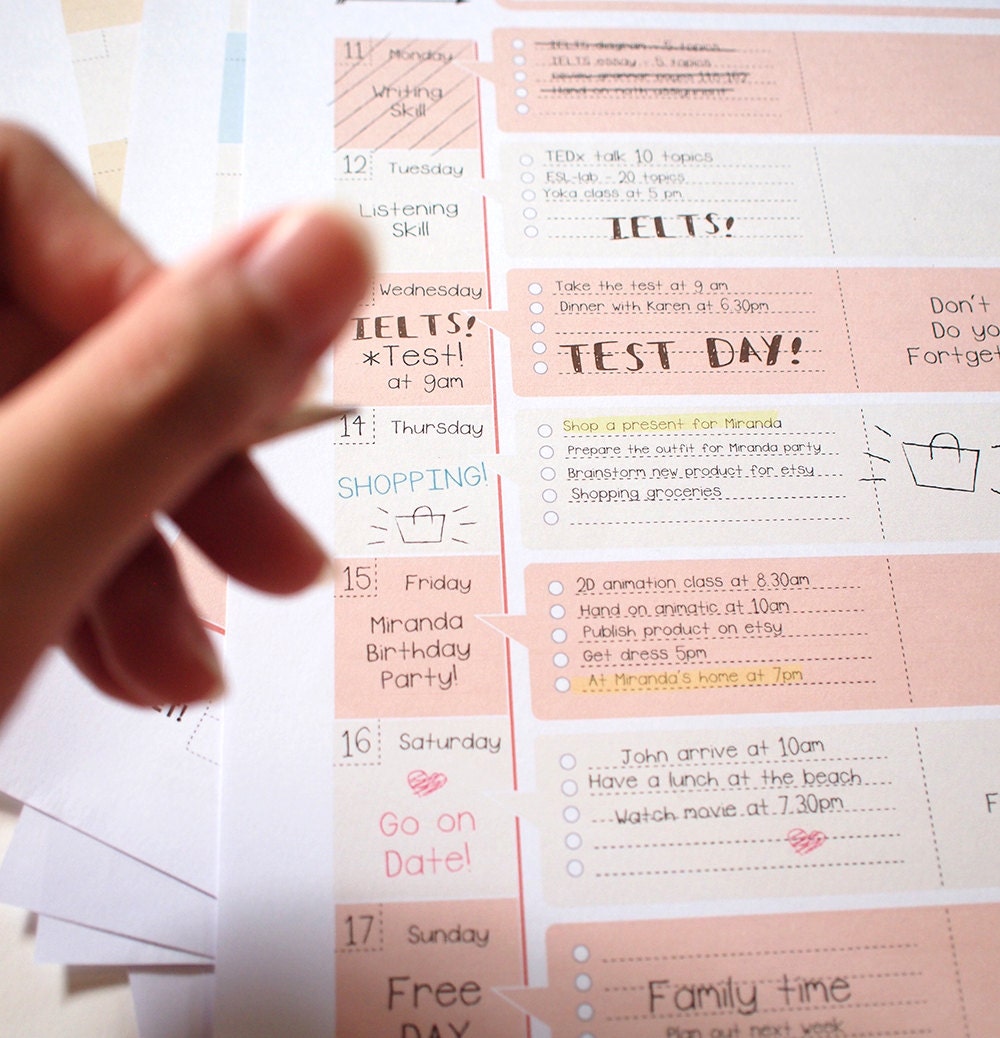 11 Monday
Writing
Skill
IELTS diagram - 5 topics
IELTS essay - 5 topics
Review grammar pages 110-162
Hand on math assignment
12 Tuesday
Listening
Skill
TEDx talk 10 topics
ESL-lab - 20 topics
Yoka class at 5 pm
IELTS!
Wednesday
IELTS!
*Test!
at 9am
Take the test at 9 am
Dinner with Karen at 6.30pm
TEST DAY!
Don't
Do yo
Fortget
14 Thursday
SHOPPING!
Shop a present for Miranda
Prepare the outfit for Miranda party
Brainstorm new product for etsy
Shopping groceries
15 Friday
Miranda
Birthday
Party!
2D animation class at 8.30am
Hand on animatic at 10am
Publish product on etsy
Get dress 5pm
At Miranda's home at 7pm
16 Saturday
Go on
Date!
John arrive at 10am
Have a lunch at the beach
Watch movie at 7.30pm
F
17 Sunday
Free
DAY
Family time
Plan out next week